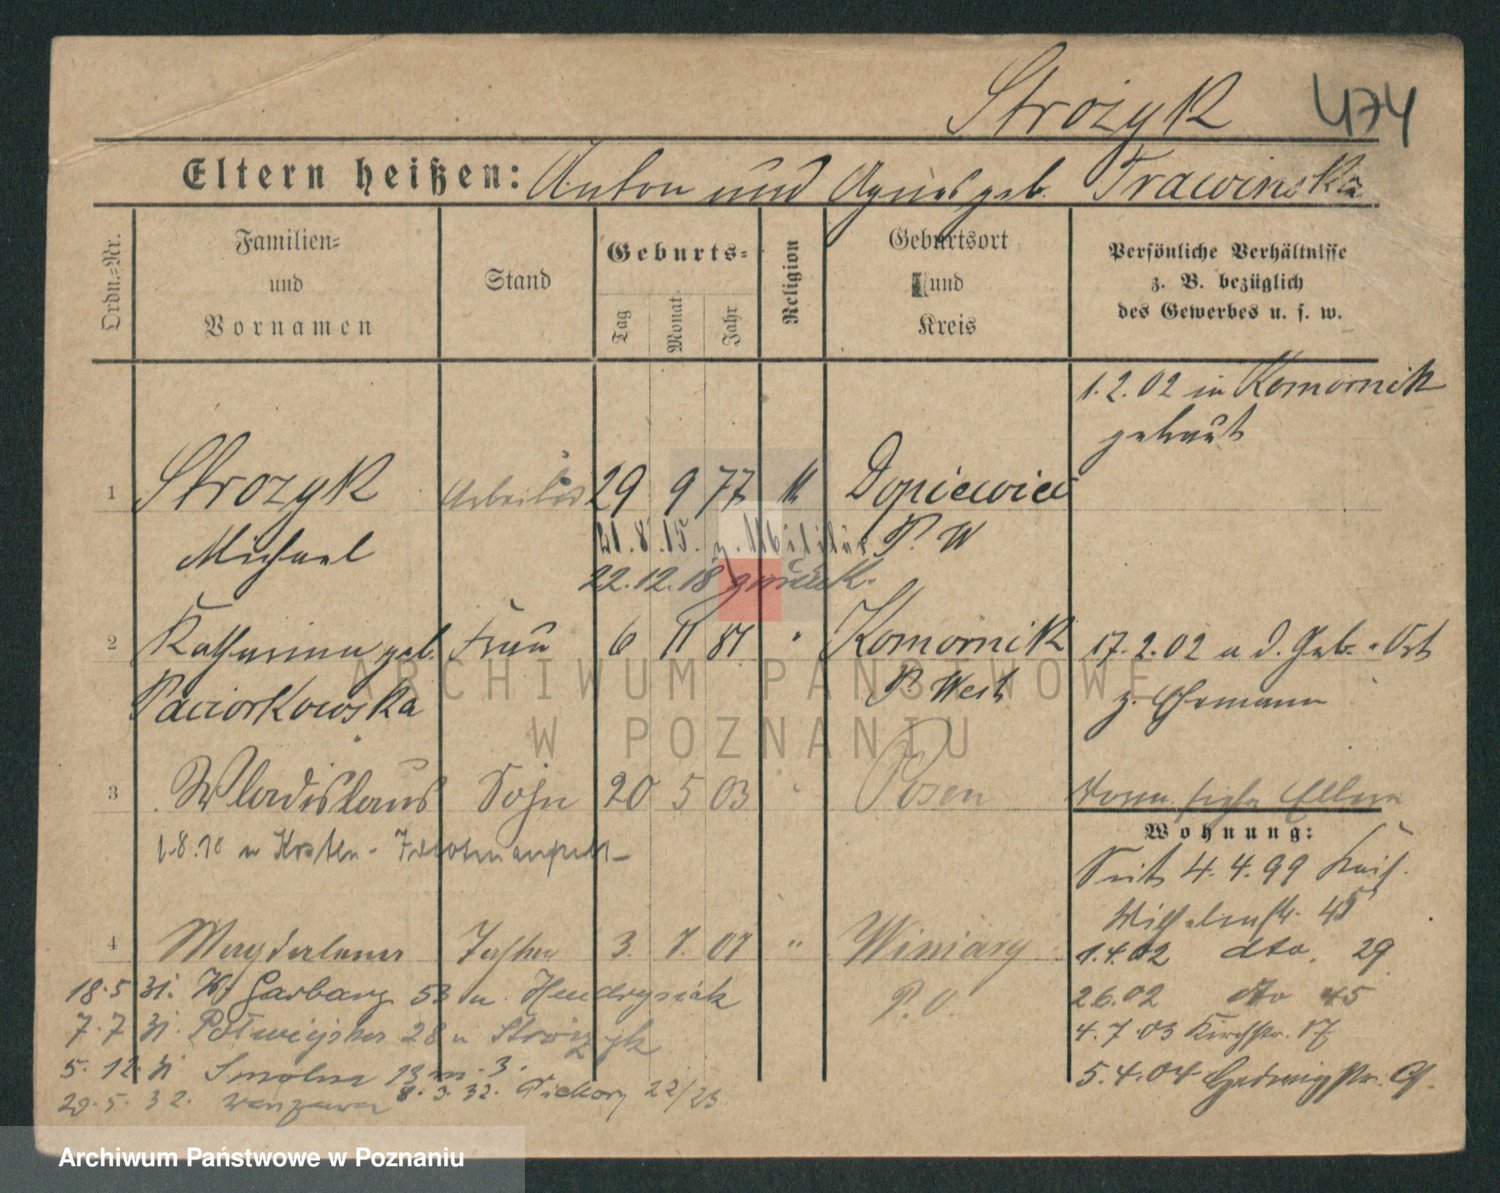 Strożyk 474
Eltern heißen: Anton und Agnes geb. Trawinska
Ordn.=Nr.
Familien=
und
Vornamen
Stand
Geburts=
Tag
Monat
Jahr
Religion
Geburtsort
und
Kreis
Persönliche Verhältnisse
z. B. bezüglich
des Gewerbes u. s. w.
1.2.02 in Komornik
getraut
1 Strozyk Arbeiter 29 9 77 k Dopiewiec
Michael
21.8.15. z. Militär P. W
22.12.18 zurück.
2 Katharina geb. Frau 6 11 81 " Komornik
Paciorkowska
P. West
17.2.02 a. d. Geb.-Ort
z. Ehemann
3 Wladislaus Sohn 20 5 03 " Posen
1.8.18 n Kosten-
Eltern
Wohnung:
Seit 4.4.99 Kais.
Wilhelmstr. 45
1.4.02 dto. 29
26.02 dto 45
4.7.03 Kirchstr. 17
5.4.04 Hedwigstr. 9.
4 Magdalena Tochter 3. 7. 07 " Winiary
P. O.
18.5 31. Garbary 53 u. Hendrysiak
7.7 31. 28 u Strożyk
5.12 31 Smolna 13 m. 3.
8.3.32. 22/23
29.5.32. Warszawa
ARCHIWUM PAŃSTWOWE
W POZNANIU
Archiwum Państwowe w Poznaniu